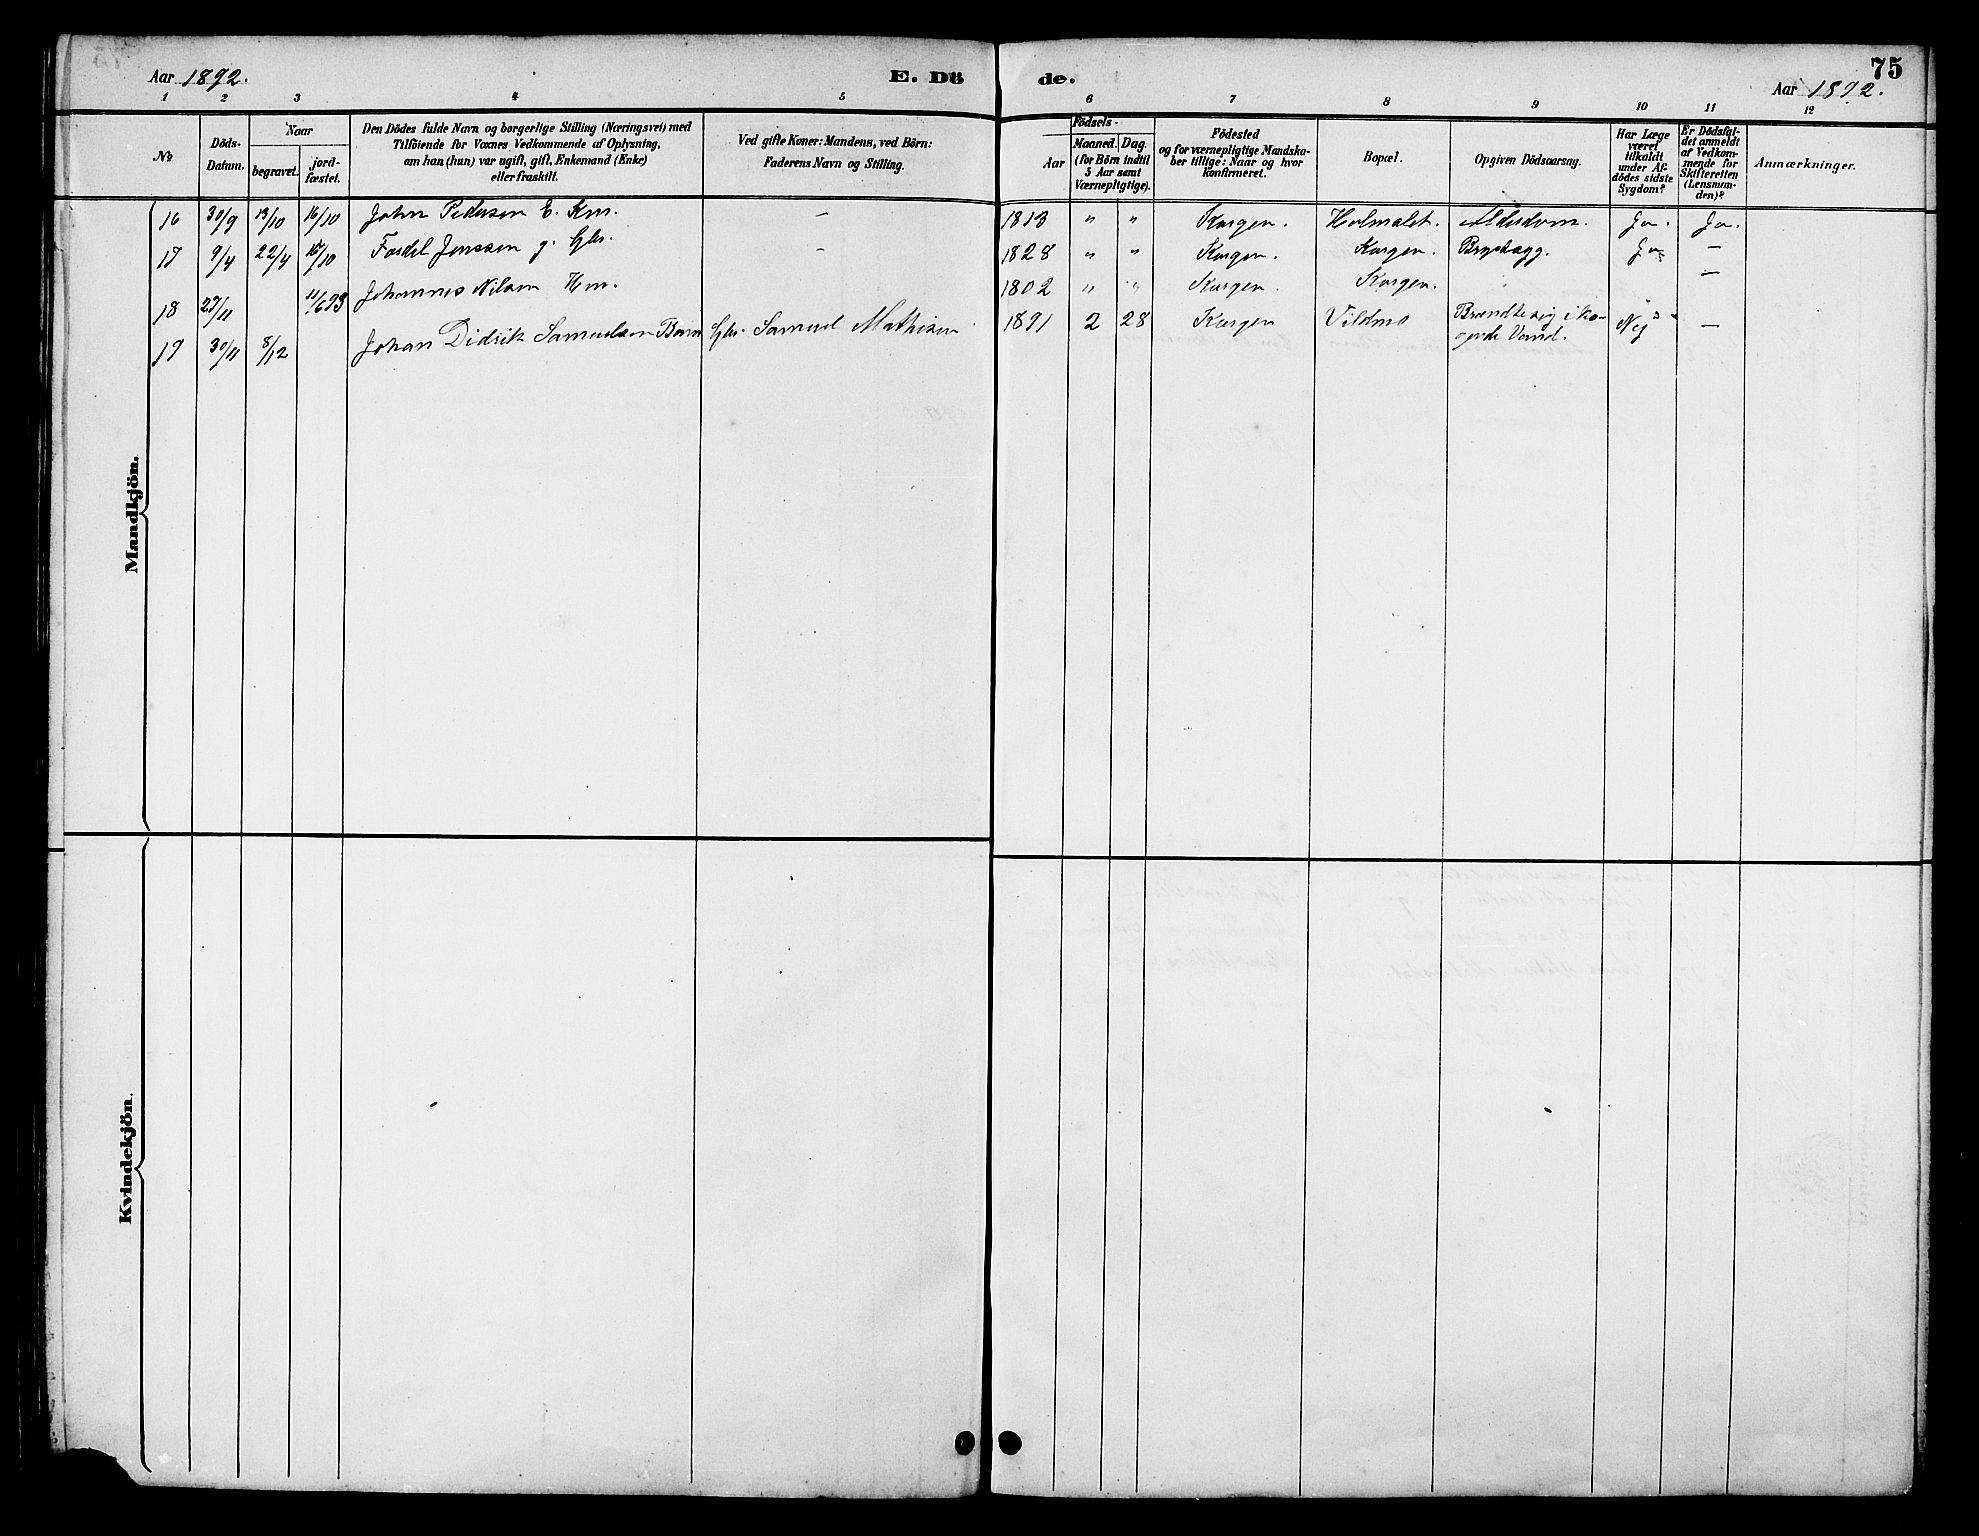 Aar 1892.
E. Dö
de.
75
Aar 1892.
1 2 3 4 5
6 7 8 9 10 11 12
No
Döds-
Datum.
Naar
begravet.
jord-
fæstet.
Den Dödes fulde Navn og borgerlige Stilling (Næringsvei) med
Tilföiende for Voxnes Vedkommende af Oplysning,
om han (hun) var ugift, gift, Enkemand (Enke)
eller fraskilt.
Ved gifte Koner: Mandens, ved Börn:
Faderens Navn og Stilling.
Födsels-
Aar
Maaned.
Dag.
(for Börn indtil
5 Aar samt
Værnepligtige).
Födested
og for værnepligtige Mandska-
ber tillige: Naar og hvor
konfirmeret.
Bopæl.
Opgiven Dödsaarsag.
Har Læge
været
tilkaldt
under Af-
dödes sidste
Sygdom?
Er Dödsfal-
det anmeldt
af Vedkom-
mende for
Skifteretten
(Lensman-
den)?
Anmærkninger.
Mandkjön.
16 30/9 13/10 16/10 John Pedersen E. Km. – 1813 " " Korgen. Holmslet. Alderdom. Ja. Ja.
17 9/4 22/4 16/10 Jenssen g. Gbr. – 1828 " " Korgen. Korgen. Ja –
18 27/11 11/6 93 Johannes Nilsen Km. 1802 " " Korgen. Korgen. –
19 30/11 8/12 Johan Didrik Samuelsen Barn Gbr. Samuel Mathisen 1891 2 28 Korgen Vildmo Brændte sig i ko-
gende Vand. Nej –
Kvindekjön.